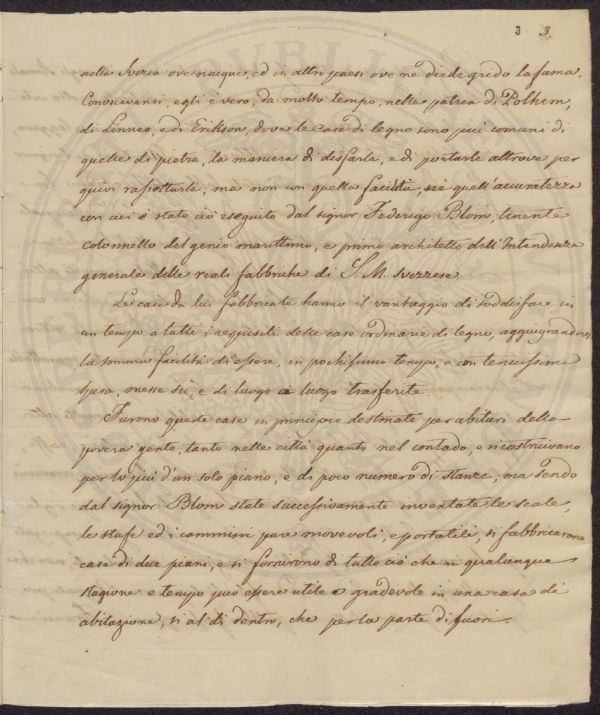 3 3.
nella Svezia ove nacque, ed in altri paesi ove ne diede grido la fama.
Conoscevansi, egli è vero, da molto tempo, nella patria di Polhem,
di Linneo, e di Erikson, dove le case di legno sono più comuni di
quelle di pietra, la maniera di disfarle, e di portarle altrove per
quivi rassettarle, ma non con quella facilità, nè quell'accuratezza
con cui è stato ciò eseguito dal signor Federigo Blom, tenente
colonnello del genio marittimo, e primo architetto dell'Intendenza
generale delle reali fabbriche di S. M. Svezzese.
Le case da lui fabbricate hanno il vantaggio di soddisfare in
un tempo a tutti i requisiti delle case ordinarie di legno, aggiugnendovi
la somma facilità di essere, in pochissimo tempo, e con tenuissima
spesa, messe sù, e di luogo a luogo trasferite.
Furono queste case in principio destinate per abituri della
povera gente, tanto nelle città quanto nel contado, e si costruivano
per lo più d'un solo piano, e di poco numero di stanze; ma sendo
dal signor Blom state successivamente inventate le scale,
le stufe ed i cammini pure movevoli, e portatili, si fabbricarono
case di due piani, e si fornirono di tutto ciò che in qualunque
stagione e tempo può essere utile e gradevole in una casa di
abitazione, sì al di dentro, che per la parte di fuori.